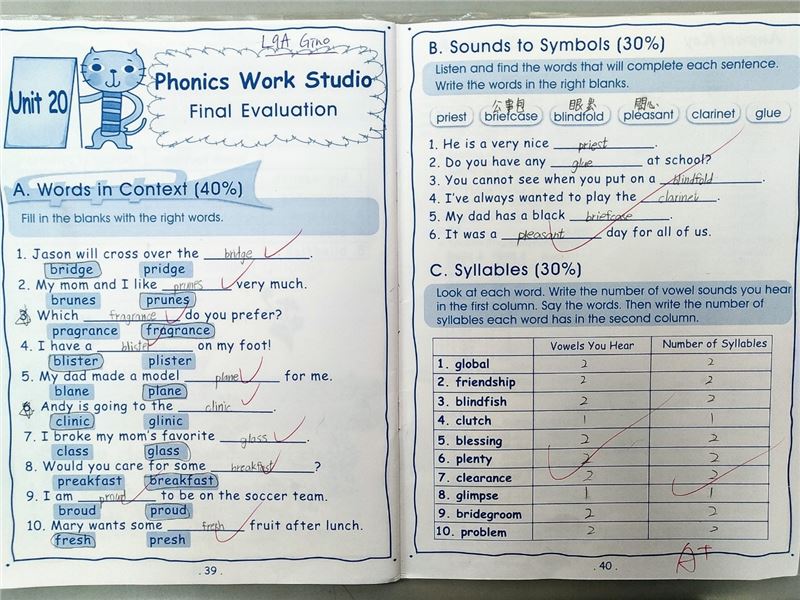 L9A Gino
Unit 20
Phonics Work Studio
Final Evaluation
A. Words in Context (40%)
Fill in the blanks with the right words.
1. Jason will cross over the bridge.
bridge pridge
2. My mom and I like prunes very much.
brunes prunes
3. Which fragrance do you prefer?
pragrance fragrance
4. I have a blister on my foot!
blister plister
5. My dad made a model plane for me.
blane plane
6. Andy is going to the clinic.
clinic glinic
7. I broke my mom's favorite glass.
class glass
8. Would you care for some breakfast?
preakfast breakfast
9. I am proud to be on the soccer team.
broud proud
10. Mary wants some fresh fruit after lunch.
fresh presh
. 39 .
B. Sounds to Symbols (30%)
Listen and find the words that will complete each sentence.
Write the words in the right blanks.
公事包 眼罩 開心
priest briefcase blindfold pleasant clarinet glue
1. He is a very nice priest.
2. Do you have any glue at school?
3. You cannot see when you put on a blindfold.
4. I've always wanted to play the clarinet.
5. My dad has a black briefcase.
6. It was a pleasant day for all of us.
C. Syllables (30%)
Look at each word. Write the number of vowel sounds you hear
in the first column. Say the words. Then write the number of
syllables each word has in the second column.
Vowels You Hear Number of Syllables
1. global 2 2
2. friendship 2 2
3. blindfish 2 2
4. clutch 1 1
5. blessing 2 2
6. plenty 2 2
7. clearance 2 2
8. glimpse 1 1
9. bridegroom 2 2
10. problem 2 2
A+
. 40 .